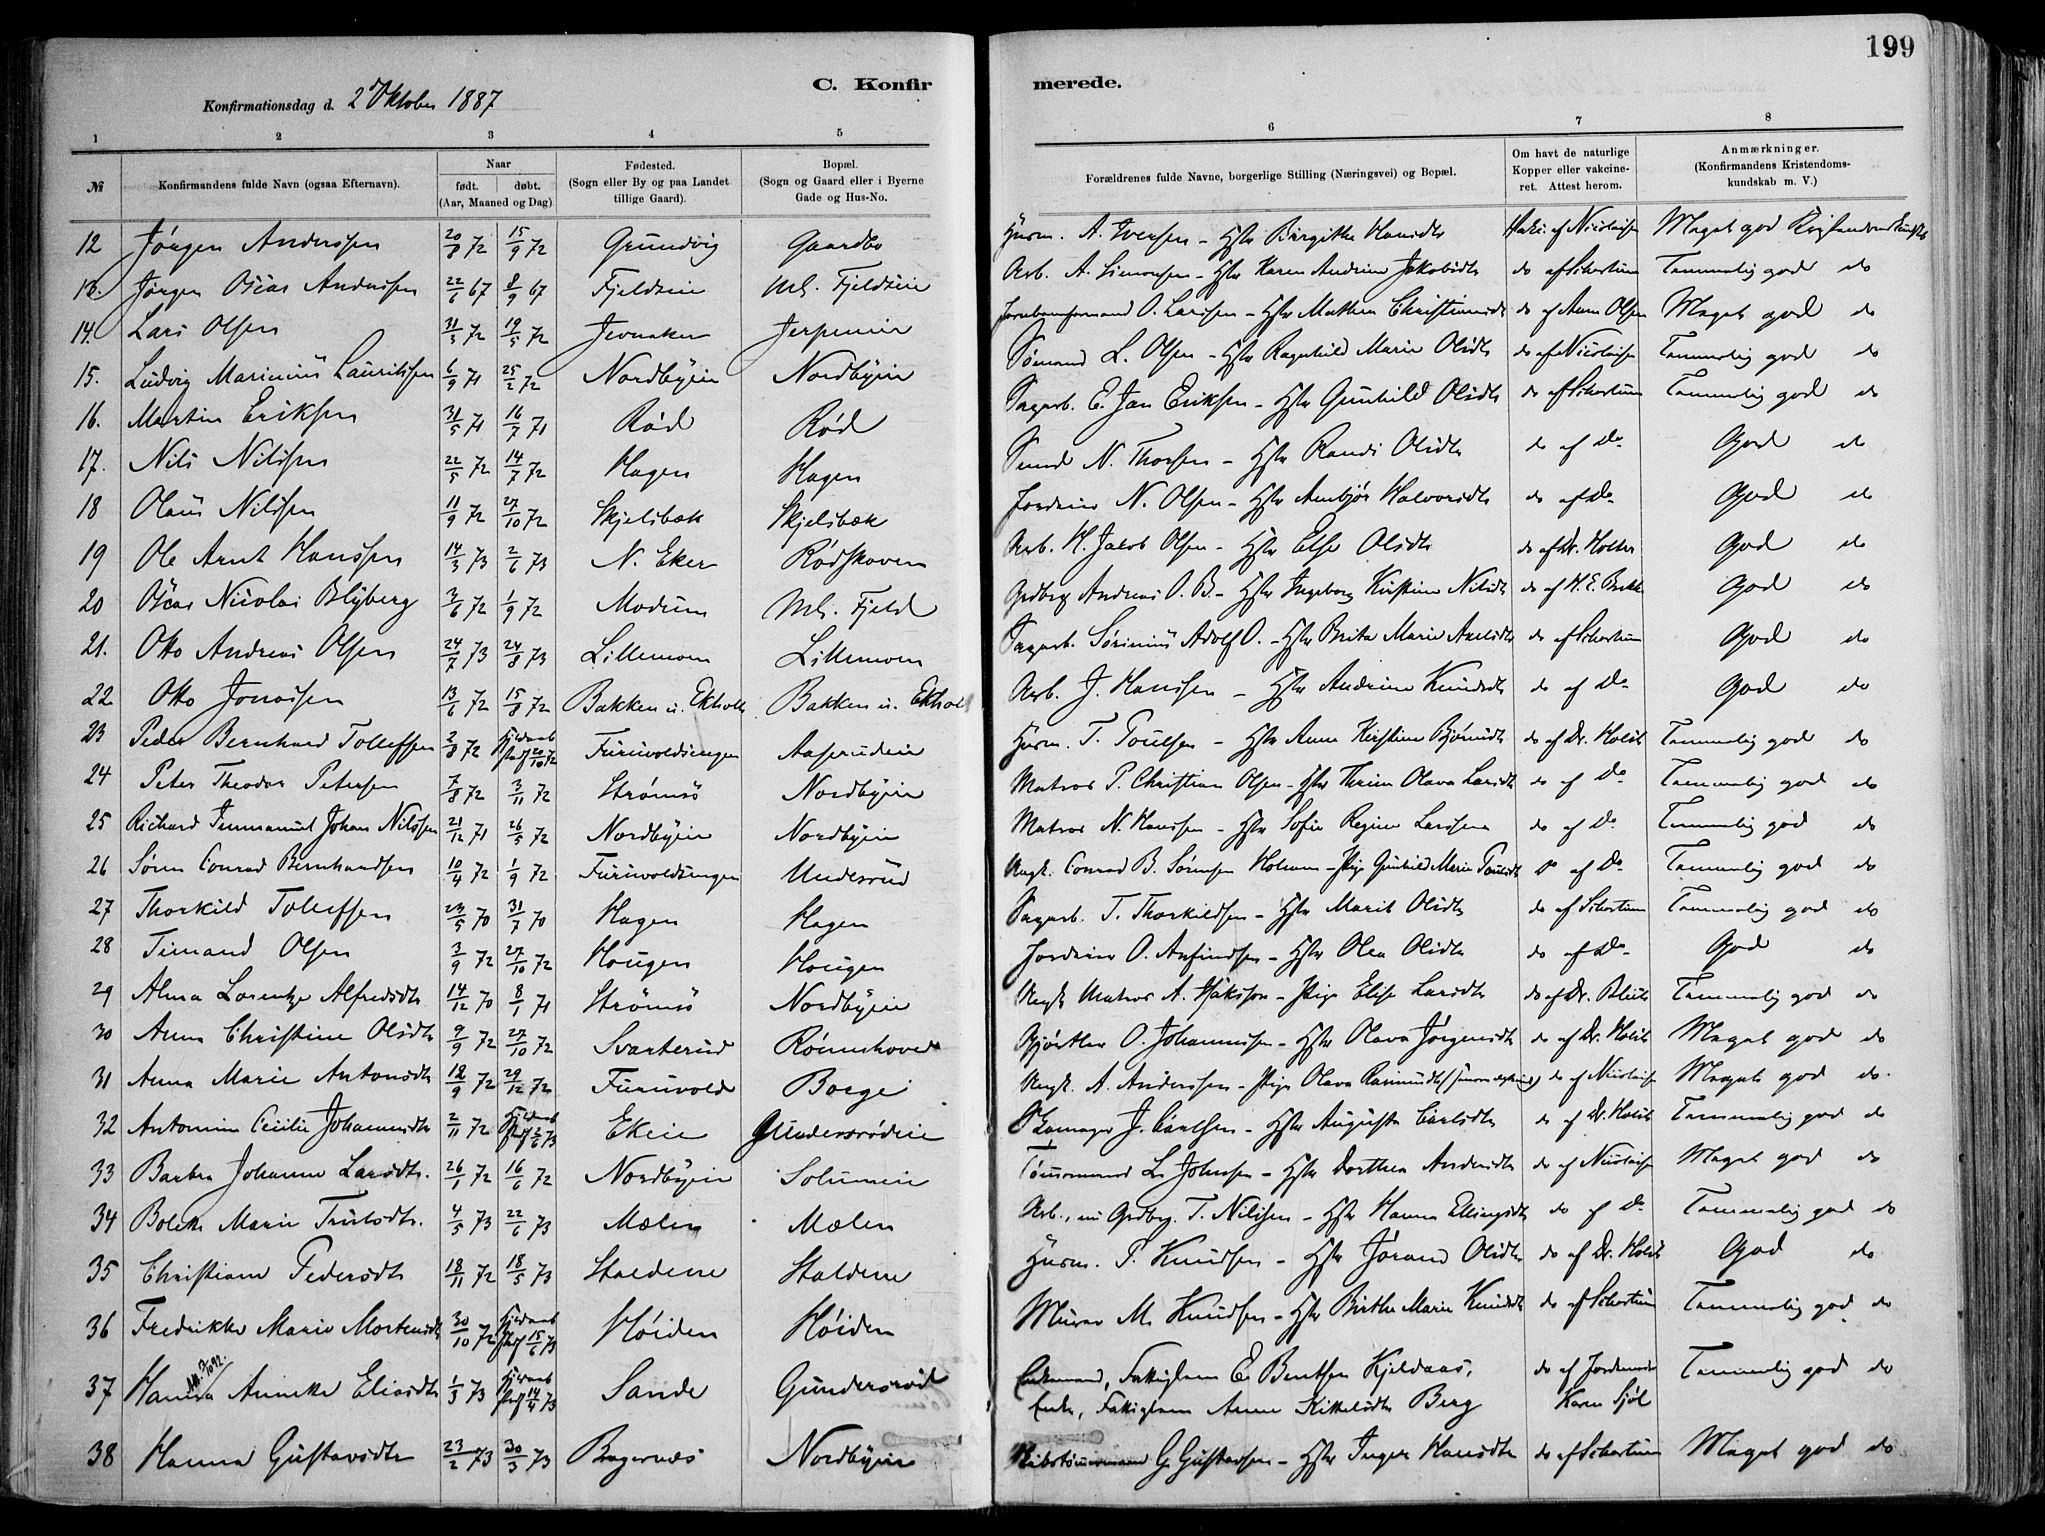 199
C. Konfirmerede.
Konfirmationsdag d. 2 Oktober 1887
1 2 3 4 5 6 7 8
№ Konfirmandens fulde Navn (ogsaa Efternavn). Naar født. døbt. (Aar, Maaned og Dag) Fødested. (Sogn eller By og paa Landet tillige Gaard). Bopæl. (Sogn og Gaard eller i Byerne Gade og Hus-No. Forældrenes fulde Navne, borgerlige Stilling (Næringsvei) og Bopæl. Om havt de naturlige Kopper eller vakcineret. Attest herom. Anmærkninger. (Konfirmandens Kristendomskundskab m. V.)
12 Jörgen Anderssen 20/8 72 15/9 72 Grundvig Gaardbo Husm. A. Iversen - Hstr Birgithe Hansdtr Vakc. af Nicolaisen Meget god Kristendomskundsk.
13. Jörgen Oscar Anderssen 22/6 67 8/9 67 Fjeldeie Ml. Fjeldeie Arb. A. Simonsen - Hstr Karen Andrine Jakobsdtr do af Schartum Temmelig god do
14. Lars Olsen 31/3 72 19/5 72 Jevnaker Jerpeneie Jernbaneformand O. Larssen - Hstr Mathea Christiansdtr do af Anne Olsen Meget god do
15. Ludvig Marinius Lauritssen 6/9 71 25/2 72 Nordbyeie Nordbyeie Sömand L. Olsen - Hstr Ragnhild Marie Olsdtr do af Nicolaisen Temmelig god do
16. Martin Eriksen 31/5 71 16/7 71 Rød Rød Sagarb. E. Jan Eriksen - Hstr Gunhild Olsdtr do af Schartum Temmelig god do
17. Nils Nilssen 22/5 72 14/7 72 Hagen Hagen N. Thorsen - Hstr Randi Olsdtr do af Do God do
18 Olaus Nilssen 11/9 72 27/10 72 Skjelsbæk Skjelsbæk Jordeier N. Olsen - Hstr Anbjör Halvorsdtr do af Do God do
19 Ole Arnt Hanssen 14/3 73 2/6 73 N. Eker Rødskoven Arb. H. Jakob Olsen - Hstr Else Olsdtr do af Dr. Holter God do
20 Oscar Nicolai Blyberg 3/6 72 1/9 72 Modum Ml. Fjeld Grdbrg Andreas O. B. - Hstr Ingeborg Kirstine Nilsdtr do af H. E. God do
21. Otto Andreas Olsen 24/7 73 24/8 73 Lillemoen Lillemoen Sagarb. Sörinius Adolf O. - Hstr Brita Marie Axelsdtr do af Schartum God do
22 Otto Jonassen 13/6 72 15/8 72 Bakken u. Ekholt Bakken u. Ekholt Arb. J. Hanssen - Hstr Andrine Knudsdtr do af Do God do
23 Peder Bernhard Tollefsen 2/8 72 Hjemdøbt Stadf. 20/10 72 Furuvoldengen Aasrudeie Husm. T. Poulsen - Hstr Anne Kirstine Björnsdtr do af Dr. Holst Temmelig god do
24 Peter Theodor Petersen 7/8 72 3/11 72 Strömsö Nordbyeie Matros P. Christian Olsen - Hstr Thrine Olava Larsdtr do af Do Temmelig god do
25 Richard Immanuel Johan Nilssen 21/12 71 26/5 72 Nordbyeie Nordbyeie Matros N. Hanssen - Hstr Sofie Regine Larsen do af Do Temmelig god do
26 Sören Conrad Bernhardsen 10/4 72 1/9 72 Furuvoldengen Undesrud Ungk. Conrad B. Sörensen - Pige Gunhild Marie Poulsdtr do af Do Temmelig god do
27 Thorkild Tollefsen 23/5 70 31/7 70 Hagen Hagen Sagarb. T. Thorkildsen - Hstr Marit Olsdtr do af Schartum Temmelig god do
28 Timand Olsen 3/9 72 27/10 72 Hougen Hougen Jordeier O. Anfindsen - Hstr Olea Olsdtr do af Do God do
29 Alma Lorentze Alfredsdtr 14/12 70 8/1 71 Strömsö Nordbyeie Ungk. Matros A. - Pige Elise Larsdtr do af Dr. Temmelig god do
30 Anna Christine Olsdtr 9/9 72 27/10 72 Svarterud Rønnehoved Gjörtler O. Johannesen - Hstr Olava Jörgensdtr do af Dr. Holst Meget god do
31 Anna Marie Antonsdtr 12/9 72 29/12 72 Furuvold Borge Ungk. A. Andersen - Pige Olava Rasmusdtr do af Nicolaisen Meget god do.
32 Antonine Cecilie Johannesdtr 2/11 72 Hjemdøbt Stadf. 2/6 73 Ekeie Gundersrødeie Skomager J. Carlsen - Hstr Augusta Carlsdtr do af Dr. Holst Temmelig god do
33 Barbra Johanne Larsdtr. 26/1 72 16/6 72 Nordbyeie Solumeie Tömmermand L. Johnsen - Hstr Dorthea Andersdtr do af Nicolaisen Meget god do
34 Bolette Marie Trulsdtr. 4/5 73 22/6 73 Mælen Mælen Arb., nu Grdbrg. T. Nilssen - Hstr Hanna Ellingsdtr do af Do Temmelig god do
35 Christiane Pedersdtr 18/11 72 18/5 73 Staldene Staldene Husm. P. Knudsen - Hstr Jörand Olsdtr do af Dr. Holst God do
36 Fredrikke Marie Mortensdtr 30/10 72 Hjemdøbt Stadf. 15/6 73 Høiden Høiden Murer M. Knudsen - Hstr Birthe Marie Knudsdtr do af Schartum Temmelig god do
37 Hanna Annette Eliasdtr 1/3 73 Hjemdøbt Stadf. 14/4 73 Sande Gundersrød Enkemand, Fattiglem E. Bentsen Kjeldaas, do af Jordemoder Temmelig god do
Enke, Fattiglem Anne Kittelsdtr Berg Karen Sjöl
38 Hanna Gustavsdtr 23/2 73 30/3 73 Bragernæs Nordbyeie G. Gustavsen - Hstr Inger Hansdtr do af Schartum Meget god do